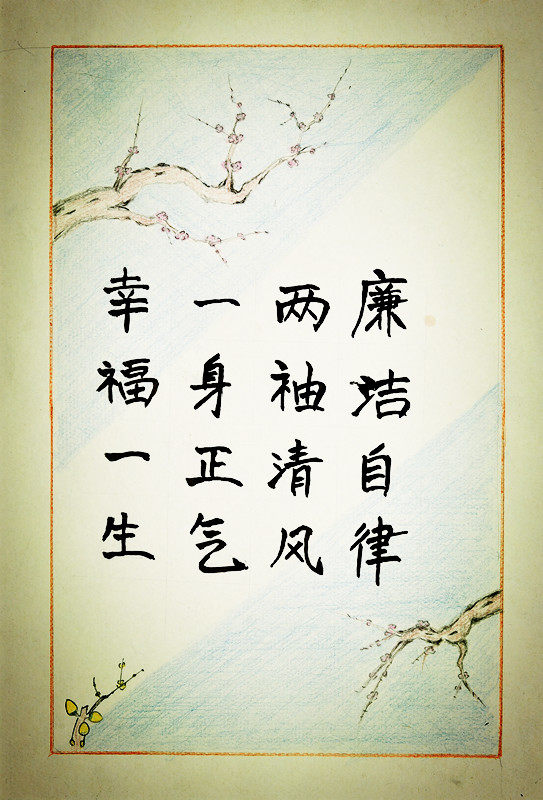 廉洁自律
两袖清风
一身正气
幸福一生